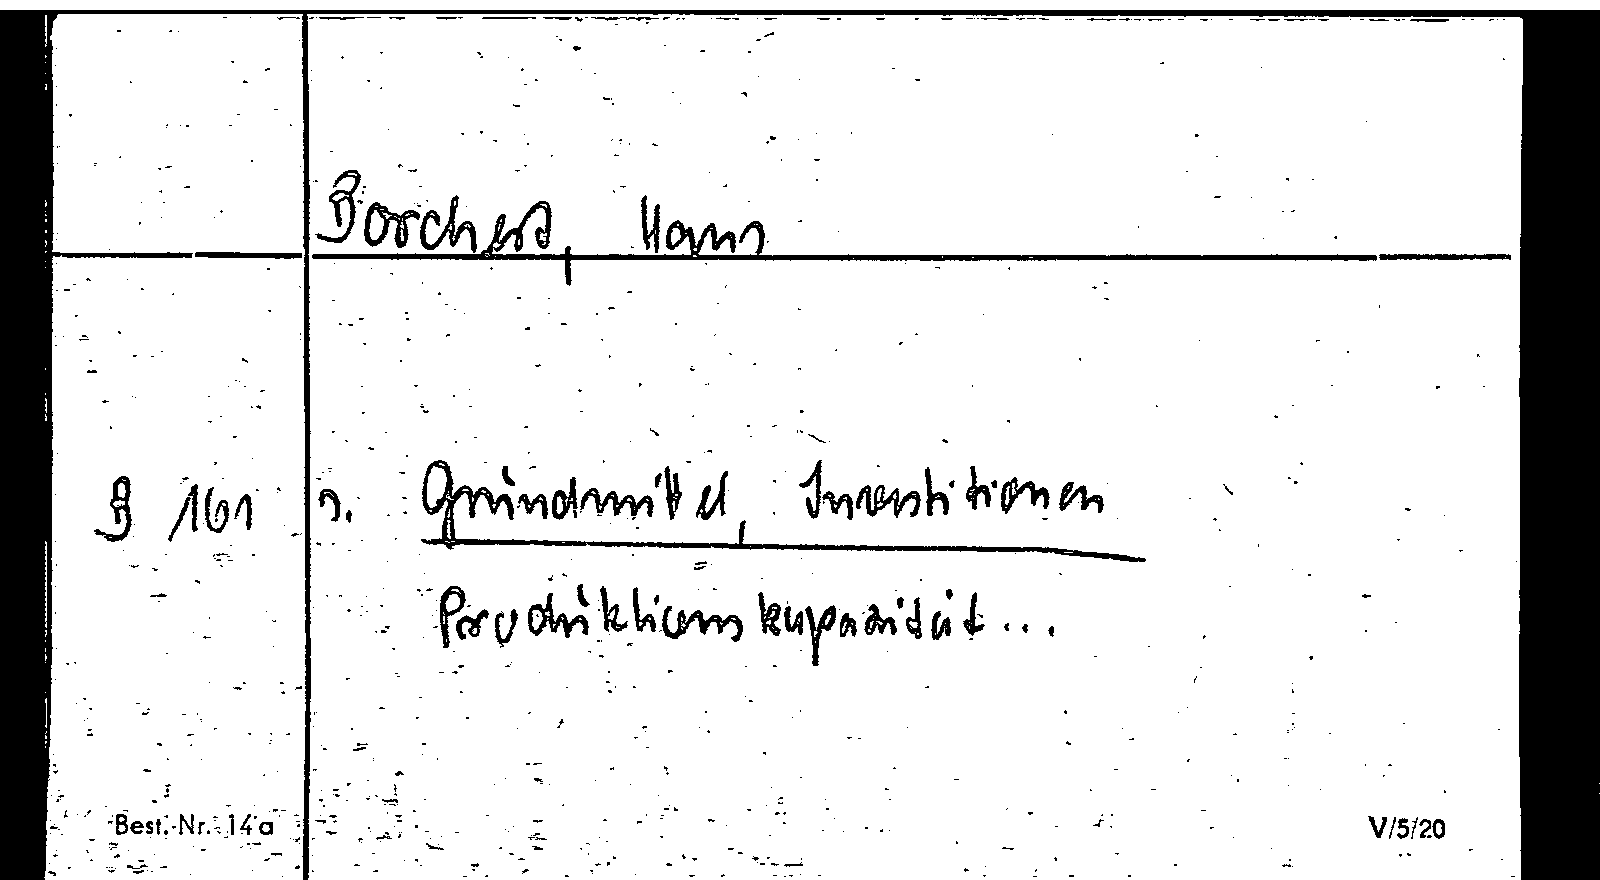 Borchert, Hans
B 161 s. Grundmittel, Investitionen
Produktionskapazität...
Best.-Nr. 14a V/5/20